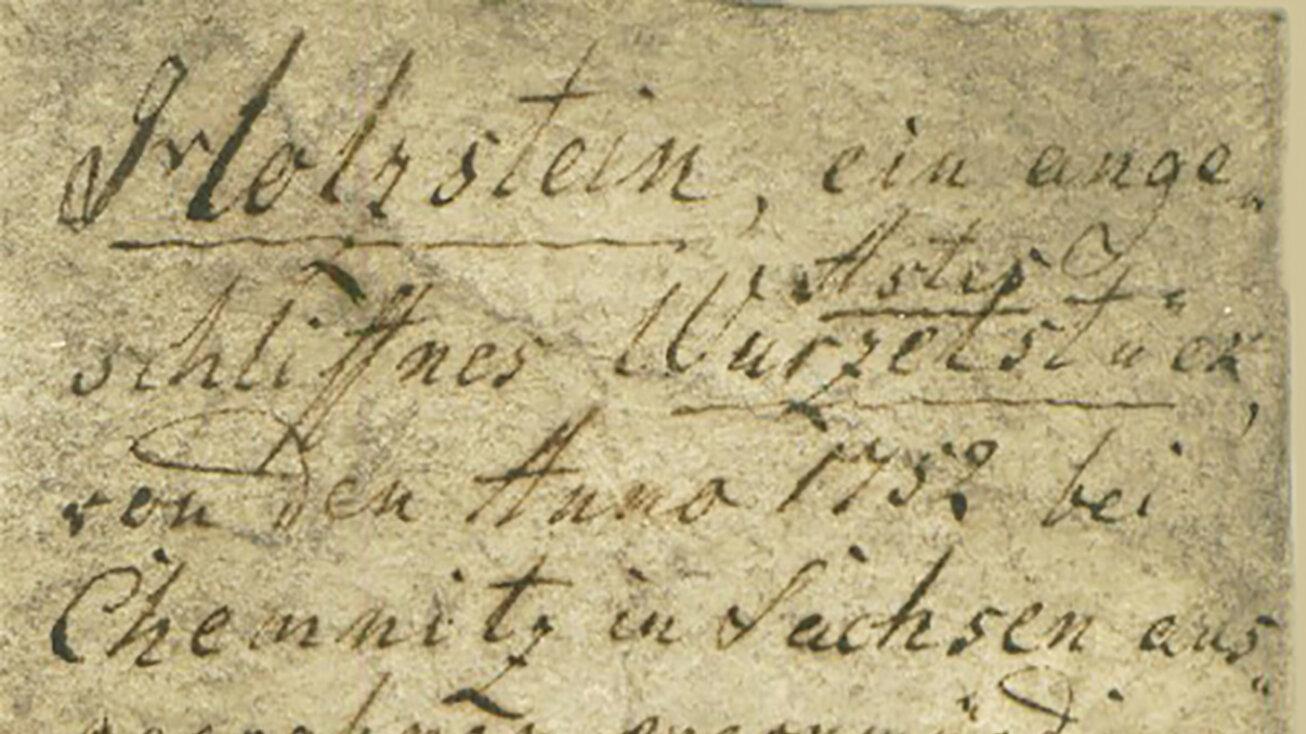 Holzstein, ein ange„
Aster
schliffnes Wurzelstück,
von den Anno 1752 bei
Chemnitz in Sachsen aus„